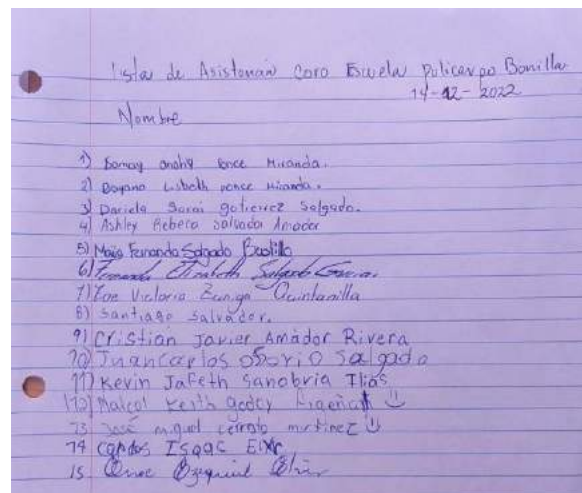 Lista de Asistencia Coro Escuela Policarpo Bonilla
14-12-2022
Nombre
1) ponce Miranda.
2) Lisbeth ponce Miranda.
3) Dariela Sarai gotierrez Salgado.
4) Ashley Rebeca Salvador Amador
5) Fernando Salgado Bustillo
6) Fernanda Elizabeth Salgado Garcia.
7) Zoe Victoria Zuniga Quintanilla
8) Santiago Salvador.
9) Cristian Javier Amador Rivera
10) Juancarlos osorio salgado
11) Kevin Jafeth Sanobria Ilias
12) Keith godoy
13 José miguel cerrato martinez
14 Isaac
15